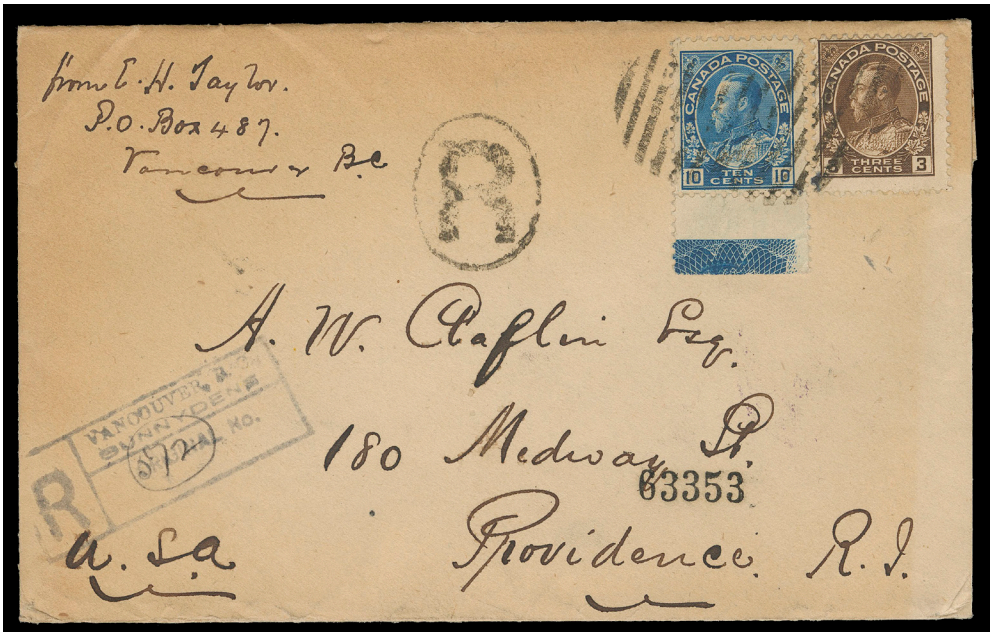 from E. H. Taylor.
P.O. Box 487.
Vancouver B.C
R
CANADA POSTAGE
10 TEN CENTS 10
CANADA POSTAGE
THREE CENTS 3
A. W. Claflin Esq.
180 Medway St.
63353
Providence. R. I.
U. S. A
R
VANCOUVER, B.C.
SUNNYDENE
ORIGINAL No.